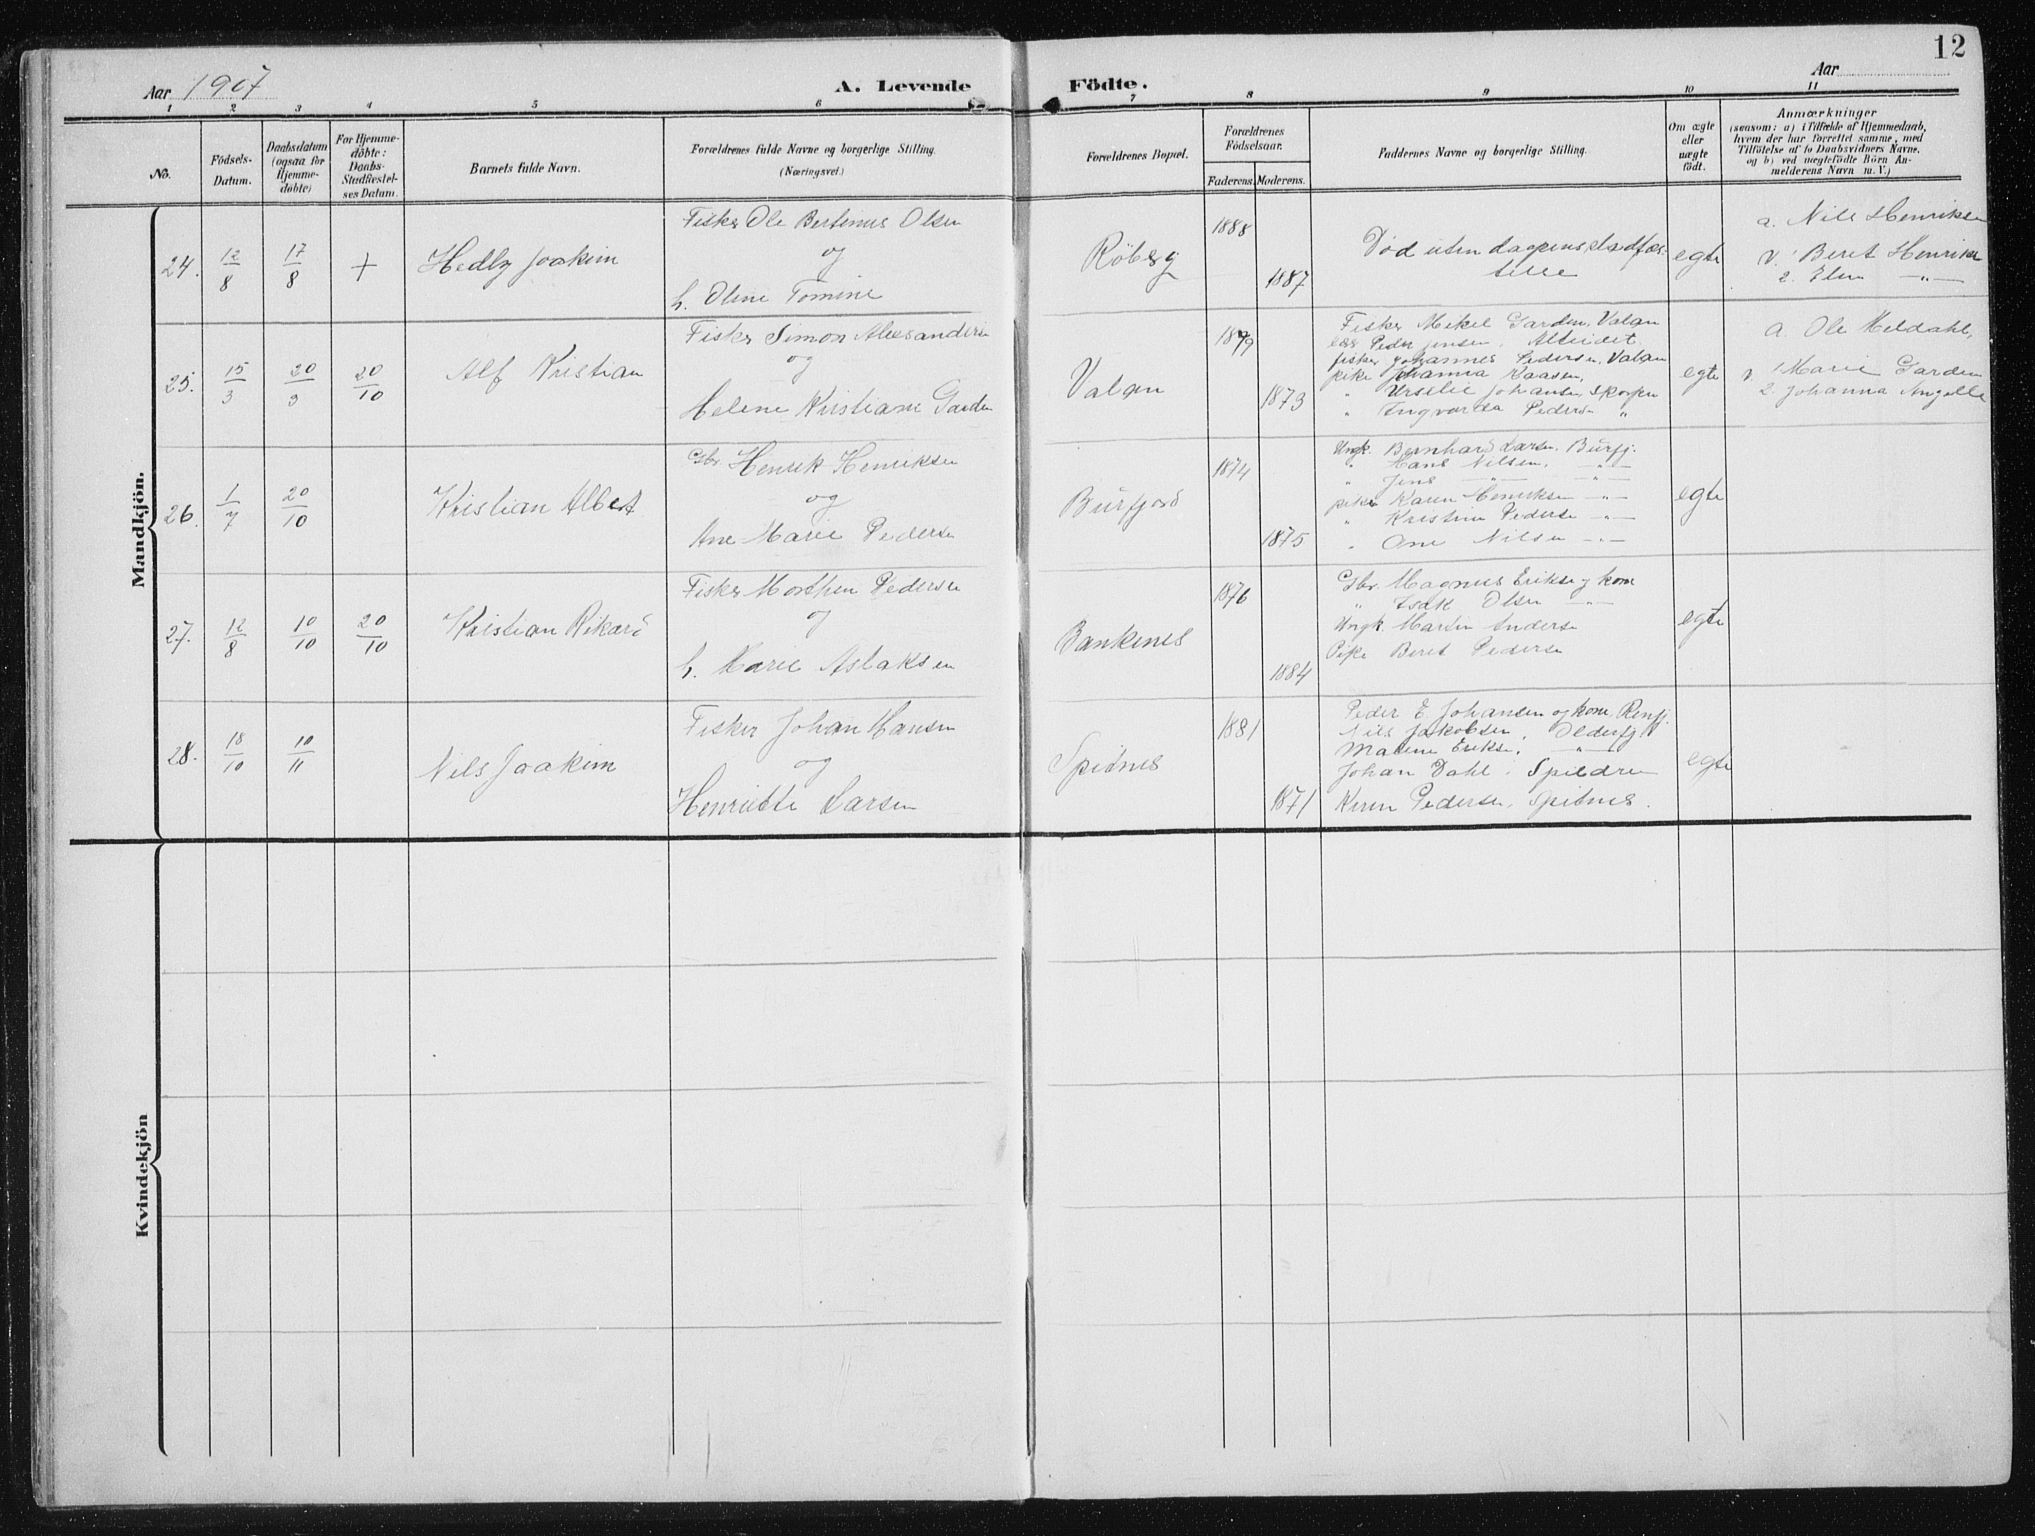 12
Aar 1907
A. Levende
Födte.
Aar
1 2 3 4 5 6 7 8 9 10 11
No.
Födsels-
Datum.
Daabsdatum
(ogsaa for
Hjemme-
döbte)
For Hjemme-
döbte:
Daabs-
Stadfæstel-
ses Datum.
Barnets fulde Navn.
Forældrenes fulde Navne og borgerlige Stilling.
(Næringsvei.)
Forældrenes Bopæl.
Forældrenes
Födselsaar.
Faderens. Moderens.
Faddernes Navne og borgerlige Stilling.
Om ægte
eller
uægte
födt.
Anmærkninger
(saasom: a) i Tilfælde af Hjemmedaab,
hvem der har forrettet samme, med
Tilföielse af to Daabsvidners Navne,
og b) ved uægtefödte Börn An-
melderens Navn m. V.)
Mandkjön.
24. 12/8 17/8 +
Hedly Joakim
Fisker Ole Bertinus Olsen
og
h. Oline Tomine
Röberg
1888
1887
Död uten daapens stadfæs-
telse
egte
a. Nils Henriksen
v. 1 Beret Henriksen
2. Elen —"—
25. 15/3 20/3 20/10
Alf Kristian
Fisker Simon Alexandersen
og
Helene Kristiane Garden
Valan
1879
1873
Fisker Mikel Garden, Valan
Peder Jensen, Alteidet
fisker Johannes Pedersen, Valan
pike Johanna Kaasen,
" Urselie Johansen, Skorpen
" Ingvarda Pederse "
egte
a. Ole Meldahl,
v. 1 Marie Garden
2. Johanna Angell
26. 1/7 20/10
Kristian Albert
Gbr. Henrik Henriksen
og
Ane Marie Pedersen
Burfjord
1874
1875
Ungk. Bernhard Larsen, Burfj.
" Hans Nilsen, —"—
" Jens —"— —"—
pike Karen Henriksen —"—
" Kristine Pederse —"—
" Ane Nilsen —"—
egte
27. 12/8 10/10 20/10
Kristian Rikard
Fisker Morthen Pedersen
og
h. Marie Aslaksen
Bankenes
1876
1884
Gbr. Magnus Eriksen og kone
" Isak Olsen —"—
Ungk. Martin Anderse
Pike Beret Pederse
egte
28. 18/10 10/11
Nils Joakim
Fisker Johan Hansen
og
Henriette Larsen
Spitnes
1881
1871
Peder E. Johansen og kone, Renfj.
Nils Jakobsen, Olderfj
Marine Erikse, —"—
Johan Dahl, Spildren
Karen Pedersen, Spitnes.
egte
Kvindekjön